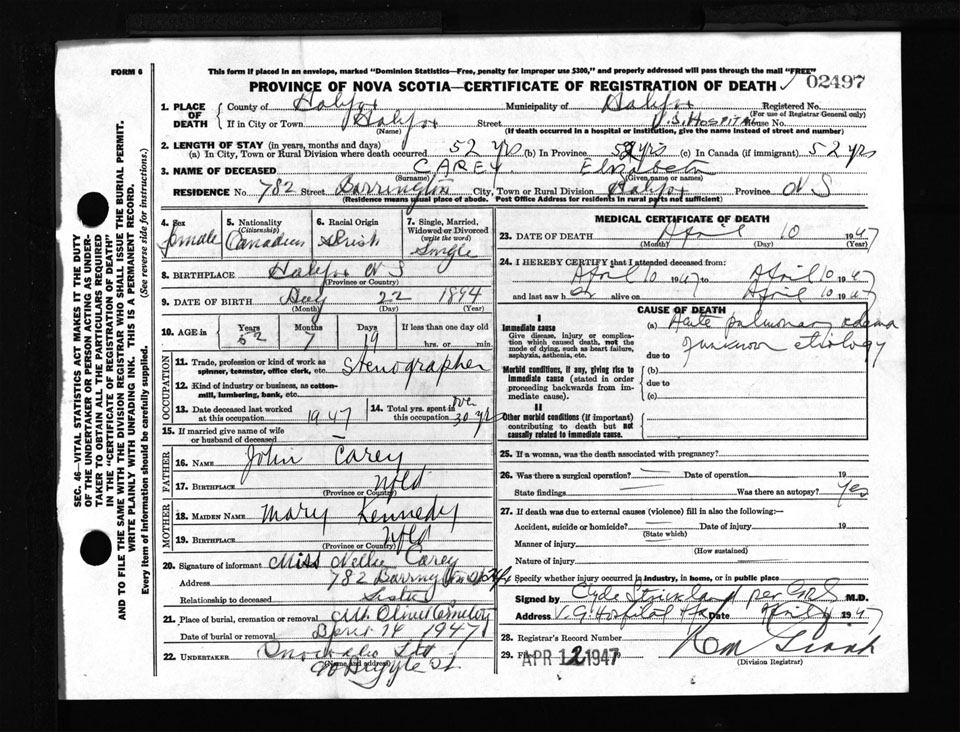 FORM 6
This form if placed in an envelope, marked "Dominion Statistics—Free, penalty for improper use $300," and properly addressed will pass through the mail "FREE"
PROVINCE OF NOVA SCOTIA—CERTIFICATE OF REGISTRATION OF DEATH
02497
1. PLACE OF DEATH
County of Halifax Municipality of Halifax Registered No.
(For use of Registrar General only)
If in City or Town Halifax Street V.G. HOSPITAL House No.
(Name) (If death occurred in a hospital or institution, give the name instead of street and number)
2. LENGTH OF STAY (in years, months and days)
(a) In City, Town or Rural Division where death occurred 52 yrs (b) In Province 52 yrs (c) In Canada (if immigrant) 52 yrs
3. NAME OF DECEASED CAREY Elizabeth
(Surname) (Given name or names)
RESIDENCE No. 782 Street Barrington City, Town or Rural Division Halifax Province N S
(Residence means usual place of abode. Post Office Address for residents in rural parts not sufficient)
4. Sex female
5. Nationality (Citizenship) Canadian
6. Racial Origin Irish
7. Single, Married, Widowed or Divorced (write the word) Single
8. BIRTHPLACE Halifax N S
(Province or Country)
9. DATE OF BIRTH 22 1894
(Month) (Day) (Year)
10. AGE in Years 52 Months 7 Days 19 If less than one day old hrs. or min.
OCCUPATION
11. Trade, profession or kind of work as spinner, teamster, office clerk, etc. Stenographer
12. Kind of industry or business, as cotton-mill, lumbering, bank, etc.
13. Date deceased last worked at this occupation 1947
14. Total yrs. spent in this occupation over 30 yrs
15. If married give name of wife or husband of deceased —
FATHER
16. NAME John Carey
17. BIRTHPLACE Nfld
(Province or Country)
MOTHER
18. MAIDEN NAME Mary Kennedy
19. BIRTHPLACE Nfld
(Province or Country)
20. Signature of informant Miss Nellie Carey
Address 782 Barrington St Hfx
Relationship to deceased Sister
21. Place of burial, cremation or removal Mt. Olivet Cemetery
Date of burial or removal 14 1947
22. UNDERTAKER Snow & Co Ltd
(Name and address)
90 Argyle St.
MEDICAL CERTIFICATE OF DEATH
23. DATE OF DEATH April 10 1947
(Month) (Day) (Year)
24. I HEREBY CERTIFY that I attended deceased from:
April 10 1947 to April 10 1947
and last saw her alive on April 10 1947
CAUSE OF DEATH
I
Immediate cause
Give disease, injury or complication which caused death, not the mode of dying, such as heart failure, asphyxia, asthenia, etc.
(a) Acute pulmonary edema
due to unknown etiology
Morbid conditions, if any, giving rise to immediate cause (stated in order proceeding backwards from immediate cause).
(b)
due to
(c)
II
Other morbid conditions (if important) contributing to death but not causally related to immediate cause.
25. If a woman, was the death associated with pregnancy?
26. Was there a surgical operation? — Date of operation 19
State findings — Was there an autopsy? Yes
27. If death was due to external causes (violence) fill in also the following:—
Accident, suicide or homicide? Date of injury 19
(State which)
Manner of injury
(How sustained)
Nature of injury
Specify whether injury occurred in industry, in home, or in public place
Signed by Clyde Strickland per GRS M.D.
Address V.G. Hospital Hfx Date April 11 1947
28. Registrar's Record Number
29. Filed APR 12 1947
(Division Registrar)
SEC. 46—VITAL STATISTICS ACT MAKES IT THE DUTY
OF THE UNDERTAKER OR PERSON ACTING AS UNDER-
TAKER TO OBTAIN ALL THE PARTICULARS REQUIRED
IN THE "CERTIFICATE OF REGISTRATION OF DEATH"
AND TO FILE THE SAME WITH THE DIVISION REGISTRAR WHO SHALL ISSUE THE BURIAL PERMIT.
WRITE PLAINLY WITH UNFADING INK. THIS IS A PERMANENT RECORD.
Every item of information should be carefully supplied. (See reverse side for instructions.)